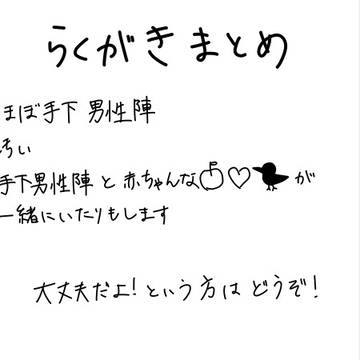 らくがきまとめ
ほぼ手下 男性陣
汚い
手下男性陣と赤ちゃんな🍎♡🐦が
一緒にいたりもします
大丈夫だよ!という方はどうぞ!